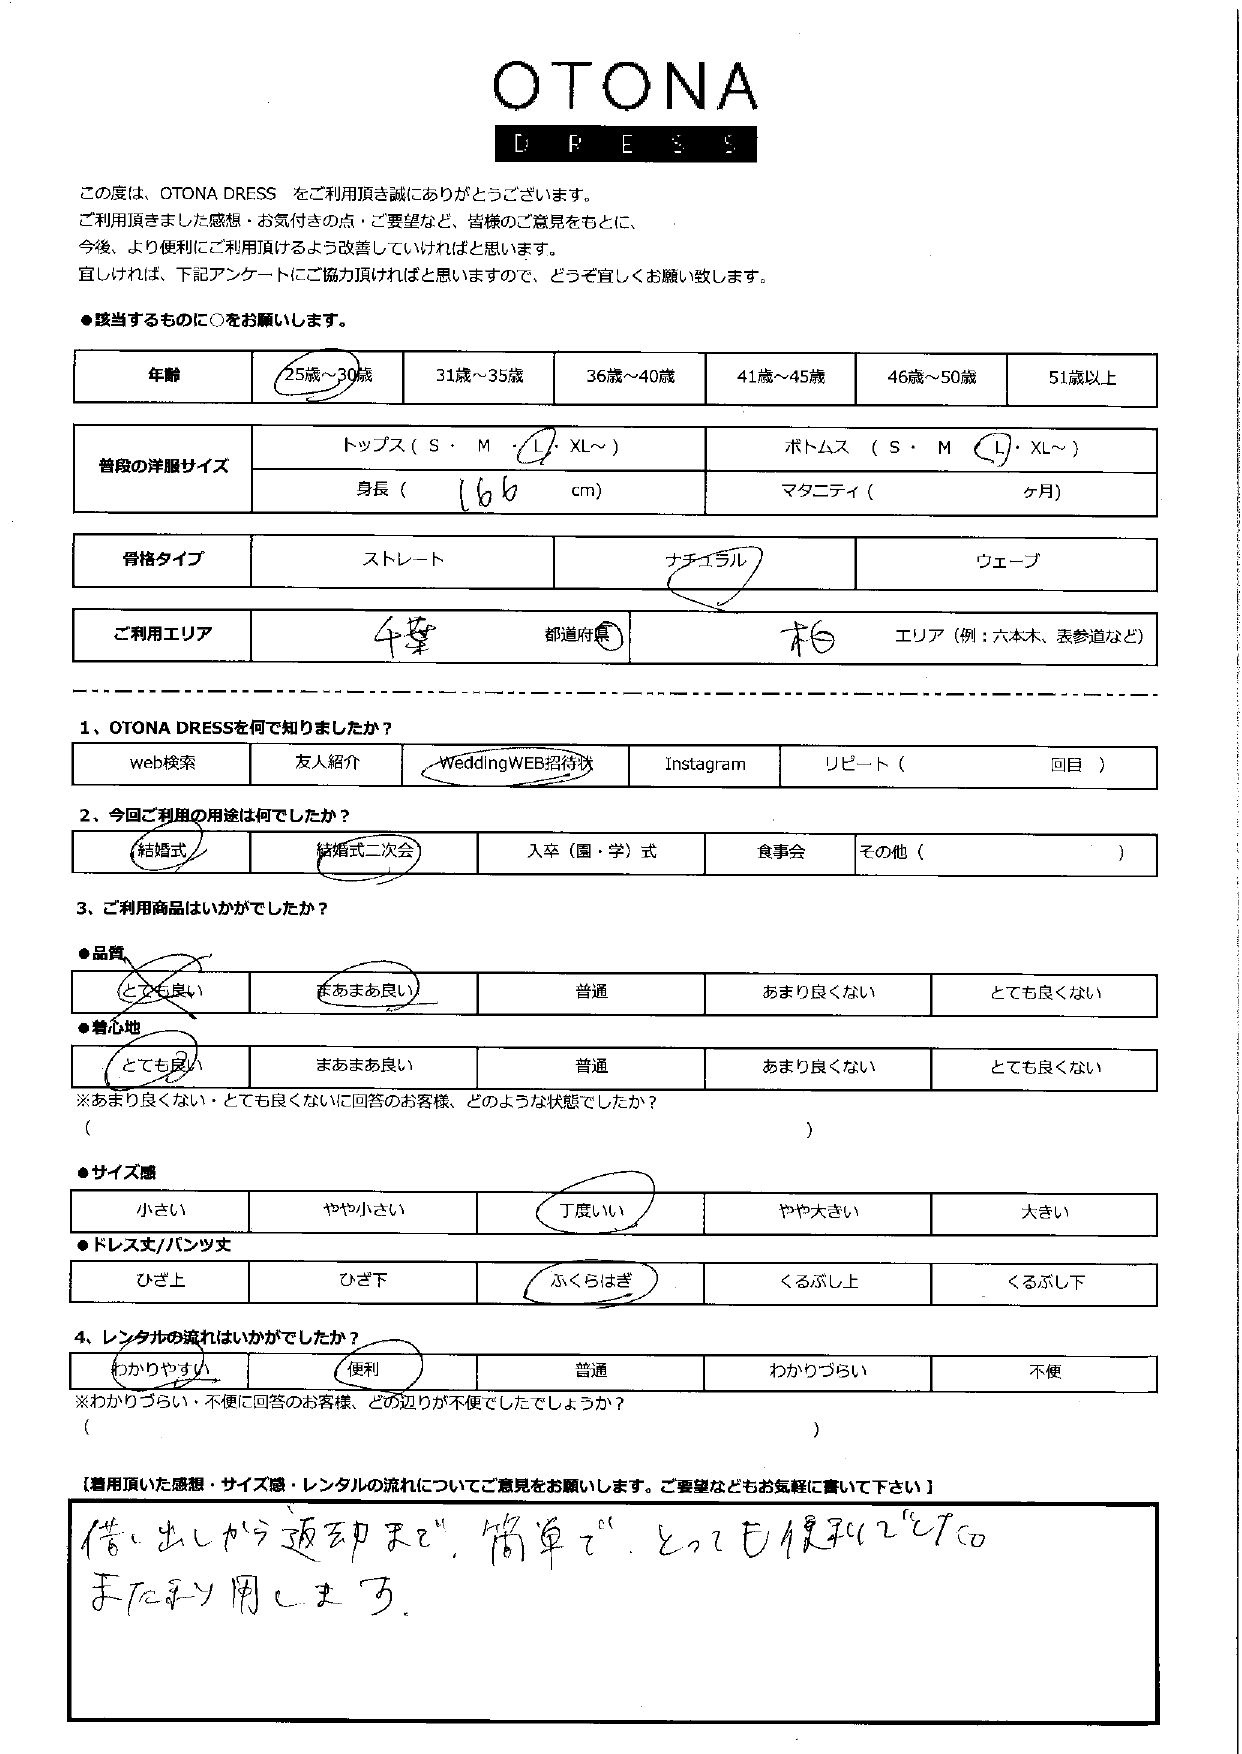 OTONA
DRESS
この度は、OTONA DRESS をご利用頂き誠にありがとうございます。
ご利用頂きました感想・お気付きの点・ご要望など、皆様のご意見をもとに、
今後、より便利にご利用頂けるよう改善していければと思います。
宜しければ、下記アンケートにご協力頂ければと思いますので、どうぞ宜しくお願い致します。
●該当するものに○をお願いします。
年齢 25歳～30歳 31歳～35歳 36歳～40歳 41歳～45歳 46歳～50歳 51歳以上
普段の洋服サイズ トップス ( S ・ M ・ L ・ XL～ ) ボトムス ( S ・ M ・ L ・ XL～ )
身長 ( 166 cm) マタニティ ( ヶ月)
骨格タイプ ストレート ナチュラル ウェーブ
ご利用エリア 千葉 都道府県 柏 エリア（例：六本木、表参道など）
1、OTONA DRESSを何で知りましたか？
web検索 友人紹介 WeddingWEB招待状 Instagram リピート ( 回目 )
2、今回ご利用の用途は何でしたか？
結婚式 結婚式二次会 入卒（園・学）式 食事会 その他 ( )
3、ご利用商品はいかがでしたか？
●品質
とても良い まあまあ良い 普通 あまり良くない とても良くない
●着心地
とても良い まあまあ良い 普通 あまり良くない とても良くない
※あまり良くない・とても良くないに回答のお客様、どのような状態でしたか？
( )
●サイズ感
小さい やや小さい 丁度いい やや大きい 大きい
●ドレス丈/パンツ丈
ひざ上 ひざ下 ふくらはぎ くるぶし上 くるぶし下
4、レンタルの流れはいかがでしたか？
わかりやすい 便利 普通 わかりづらい 不便
※わかりづらい・不便に回答のお客様、どの辺りが不便でしたでしょうか？
( )
【着用頂いた感想・サイズ感・レンタルの流れについてご意見をお願いします。ご要望などもお気軽に書いて下さい】
借し出しから返却まで、簡単で、とっても便利でした。
また利用します.